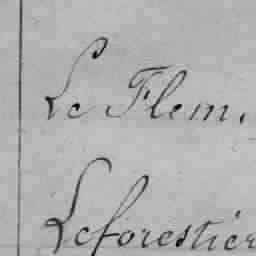 Le Flem.
Leforestier